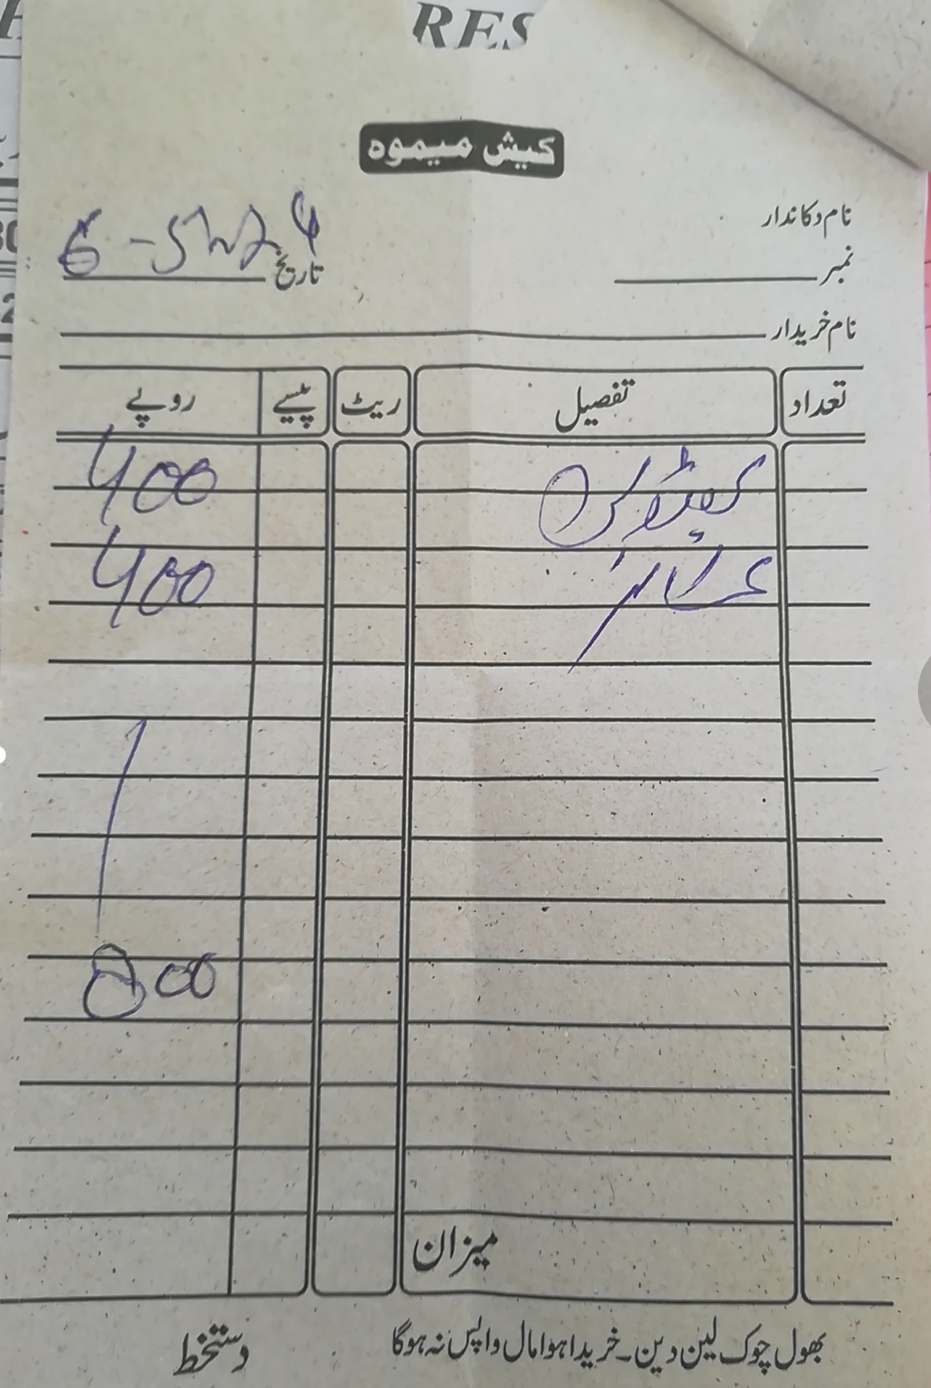 RES
کیش میمو
نام دکاندار
نمبر
تاریخ 6-5-24
نام خریدار
تعداد تفصیل ریٹ پیسے روپے
400
400
800
میزان
بھول چوک لین دین۔ خریدا ہوا مال واپس نہ ہوگا
دستخط